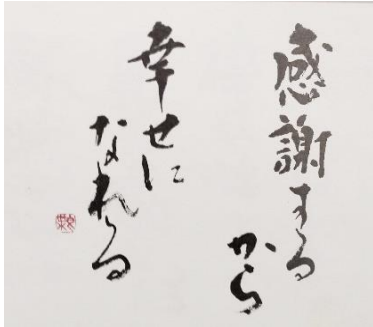 感謝する
から
幸せに
なれる